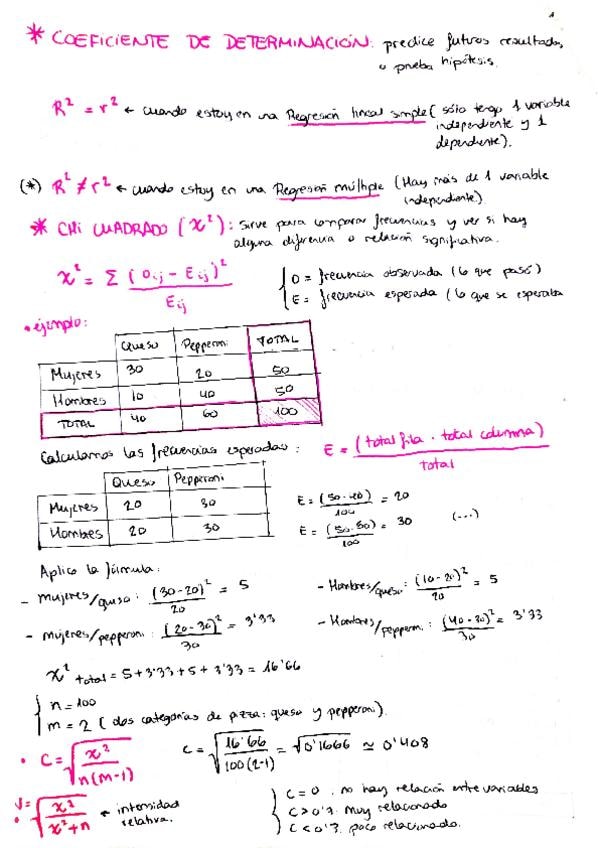 * COEFICIENTE DE DETERMINACIÓN: predice futuros resultados,
o prueba hipótesis.
R² = r² ← cuando estoy en una Regresión lineal simple (sólo tengo 1 variable
independiente y 1
dependiente).
(*) R² ≠ r² ← cuando estoy en una Regresión múltiple (Hay más de 1 variable
independiente)
* CHI CUADRADO (x²): sirve para comparar frecuencias y ver si hay
alguna diferencia o relación significativa.
x² = Σ (Oij - Eij)² / Eij
O = frecuencia observada (lo que pasó)
E = frecuencia esperada (lo que se esperaba
• ejemplo:
Queso Pepperoni TOTAL
Mujeres 30 20 50
Hombres 10 40 50
TOTAL 40 60 100
Calculamos las frecuencias esperadas: E = (total fila · total columna) / total
Queso Pepperoni
Mujeres 20 30
Hombres 20 30
E = (50·40) / 100 = 20
E = (50·60) / 100 = 30 (...)
Aplico la fórmula:
- Mujeres/queso: (30-20)² / 20 = 5
- Hombres/queso: (10-20)² / 20 = 5
- Mujeres/pepperoni: (20-30)² / 30 = 3'33
- Hombres/pepperoni: (40-30)² / 30 = 3'33
x² total = 5 + 3'33 + 5 + 3'33 = 16'66
n = 100
m = 2 (dos categorías de pizza: queso y pepperoni).
• C = √(x² / n(m-1))
C = √(16'66 / 100(2-1)) = √0'1666 ≃ 0'408
• V = √(x² / x²+n) ← intensidad
relativa.
C = 0 . no hay relación entre variables
C > 0'7. muy relacionado
C < 0'3. poco relacionado.